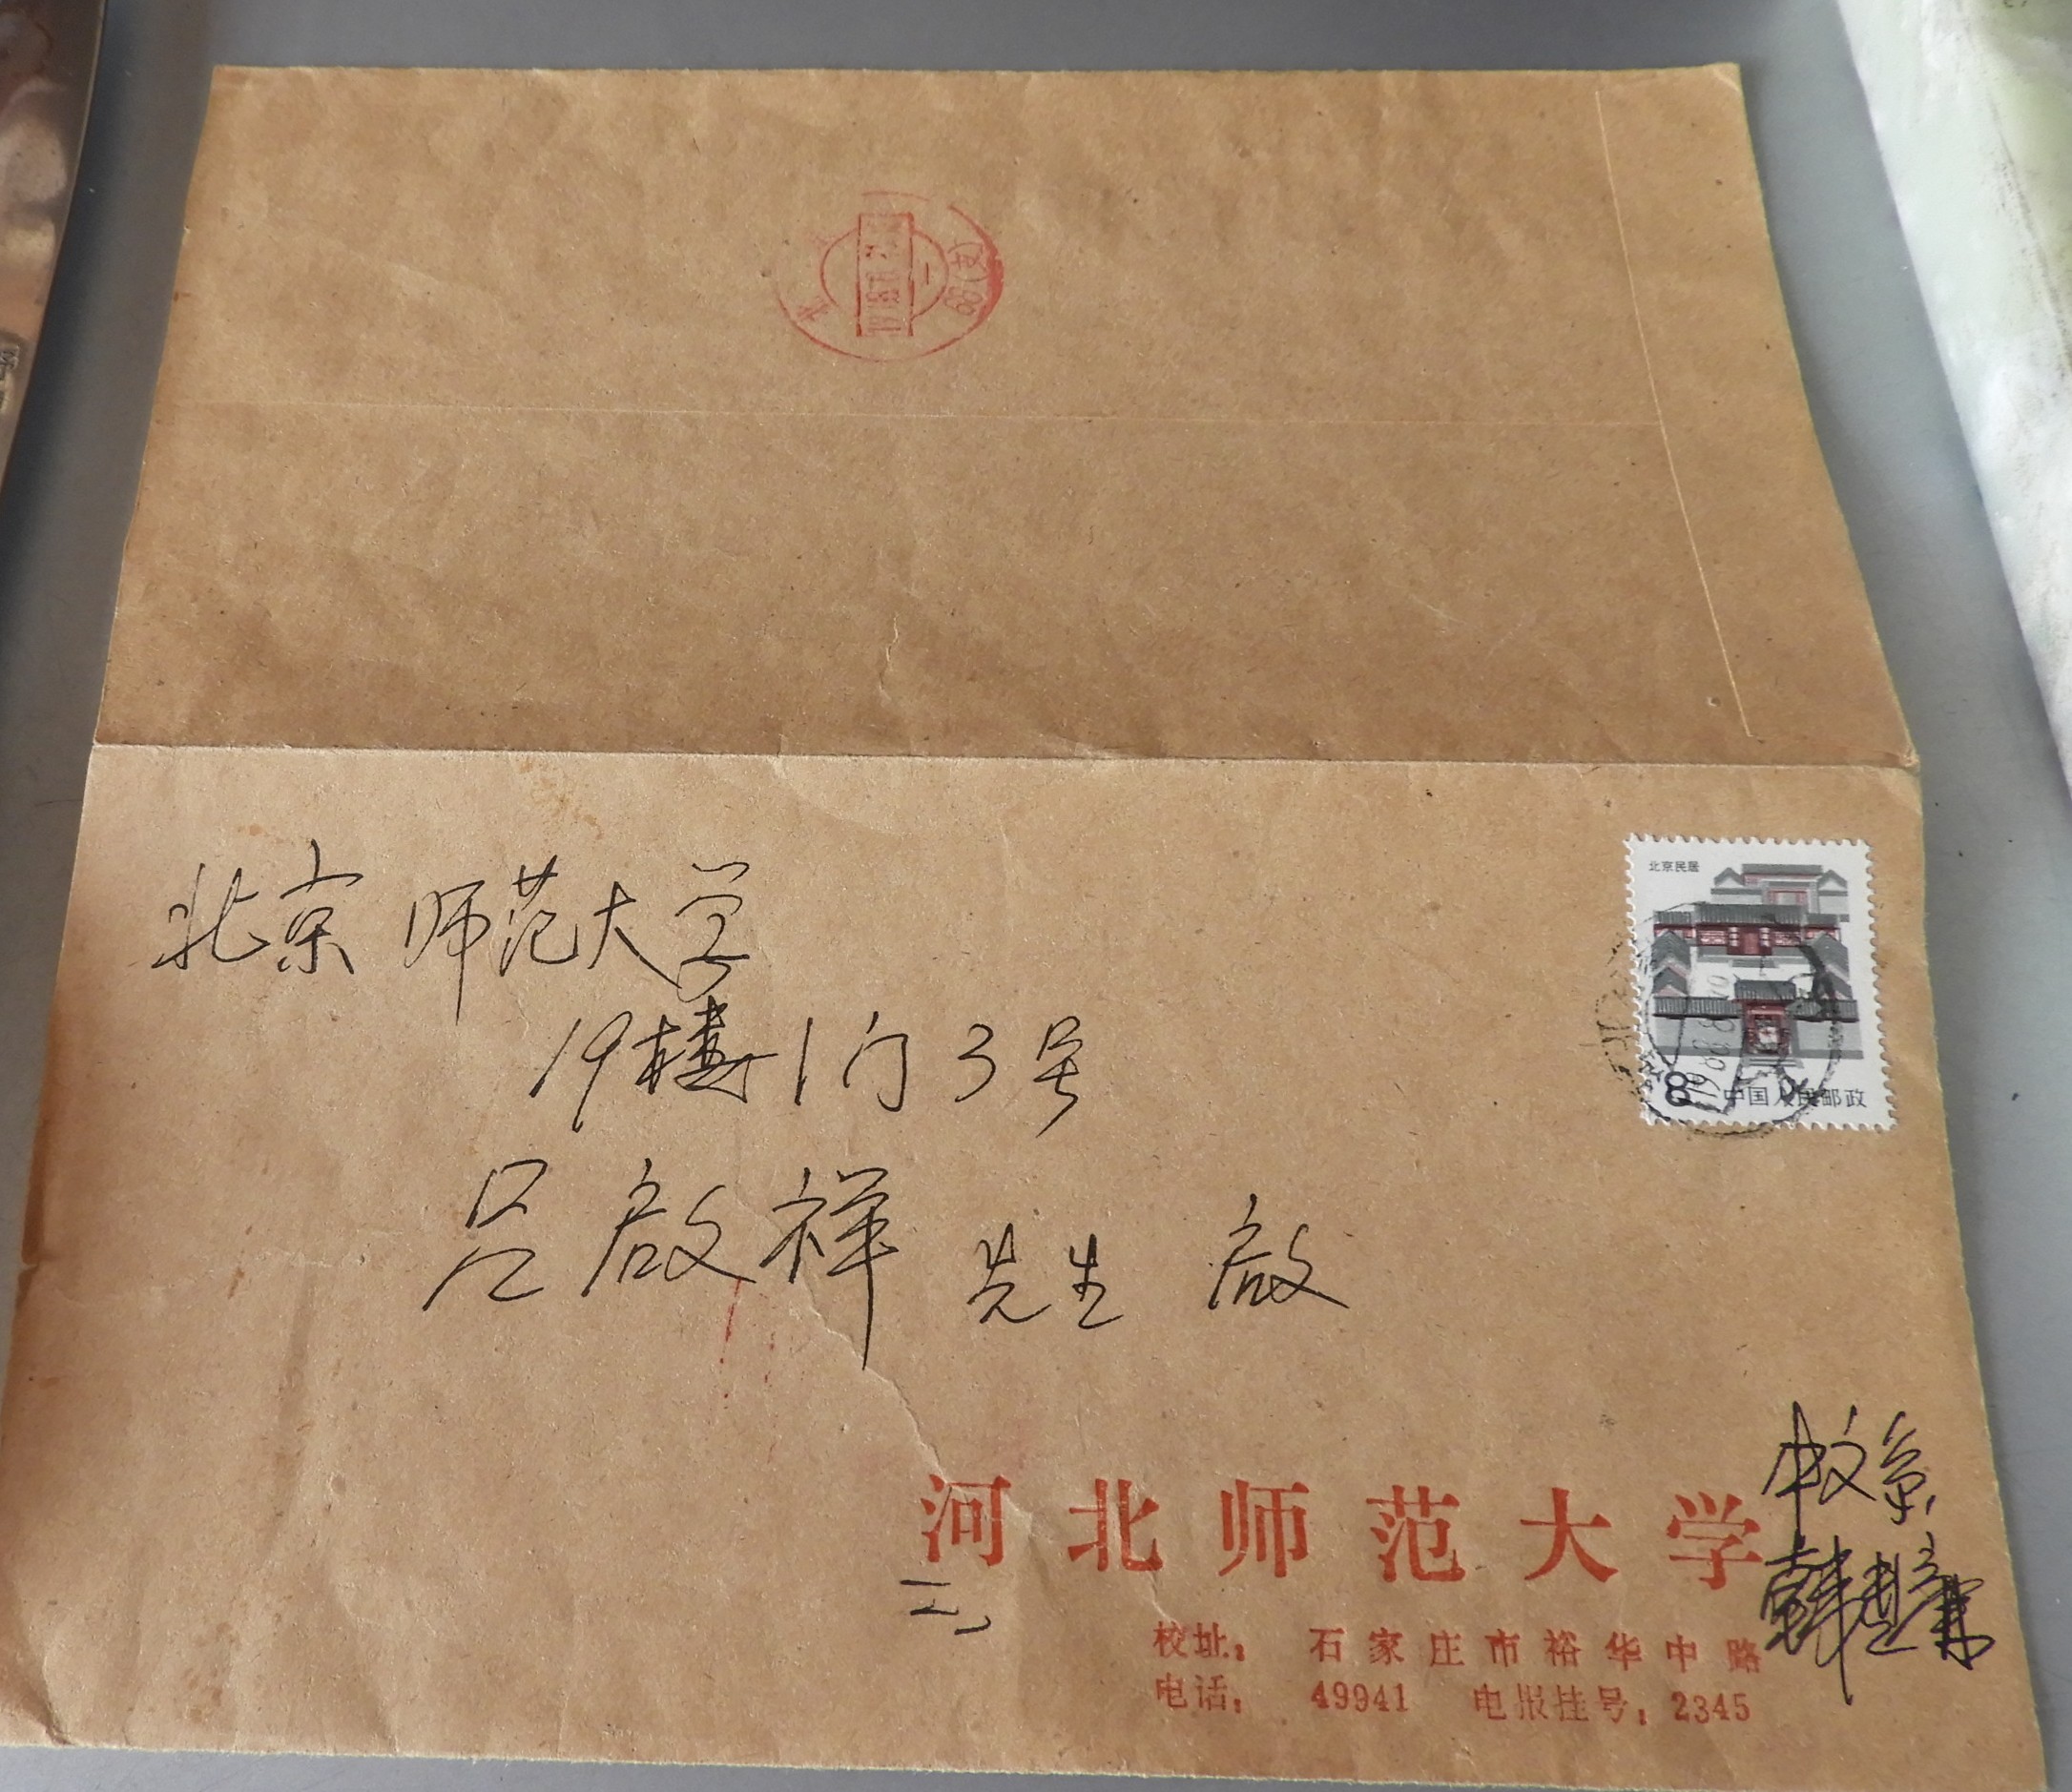 北京师范大学
19楼1门3号
吕啟祥 先生 啟
北京民居
8 中国人民邮政
中文系
河北师范大学
校址： 石家庄市裕华中路
电话： 49941 电报挂号：2345